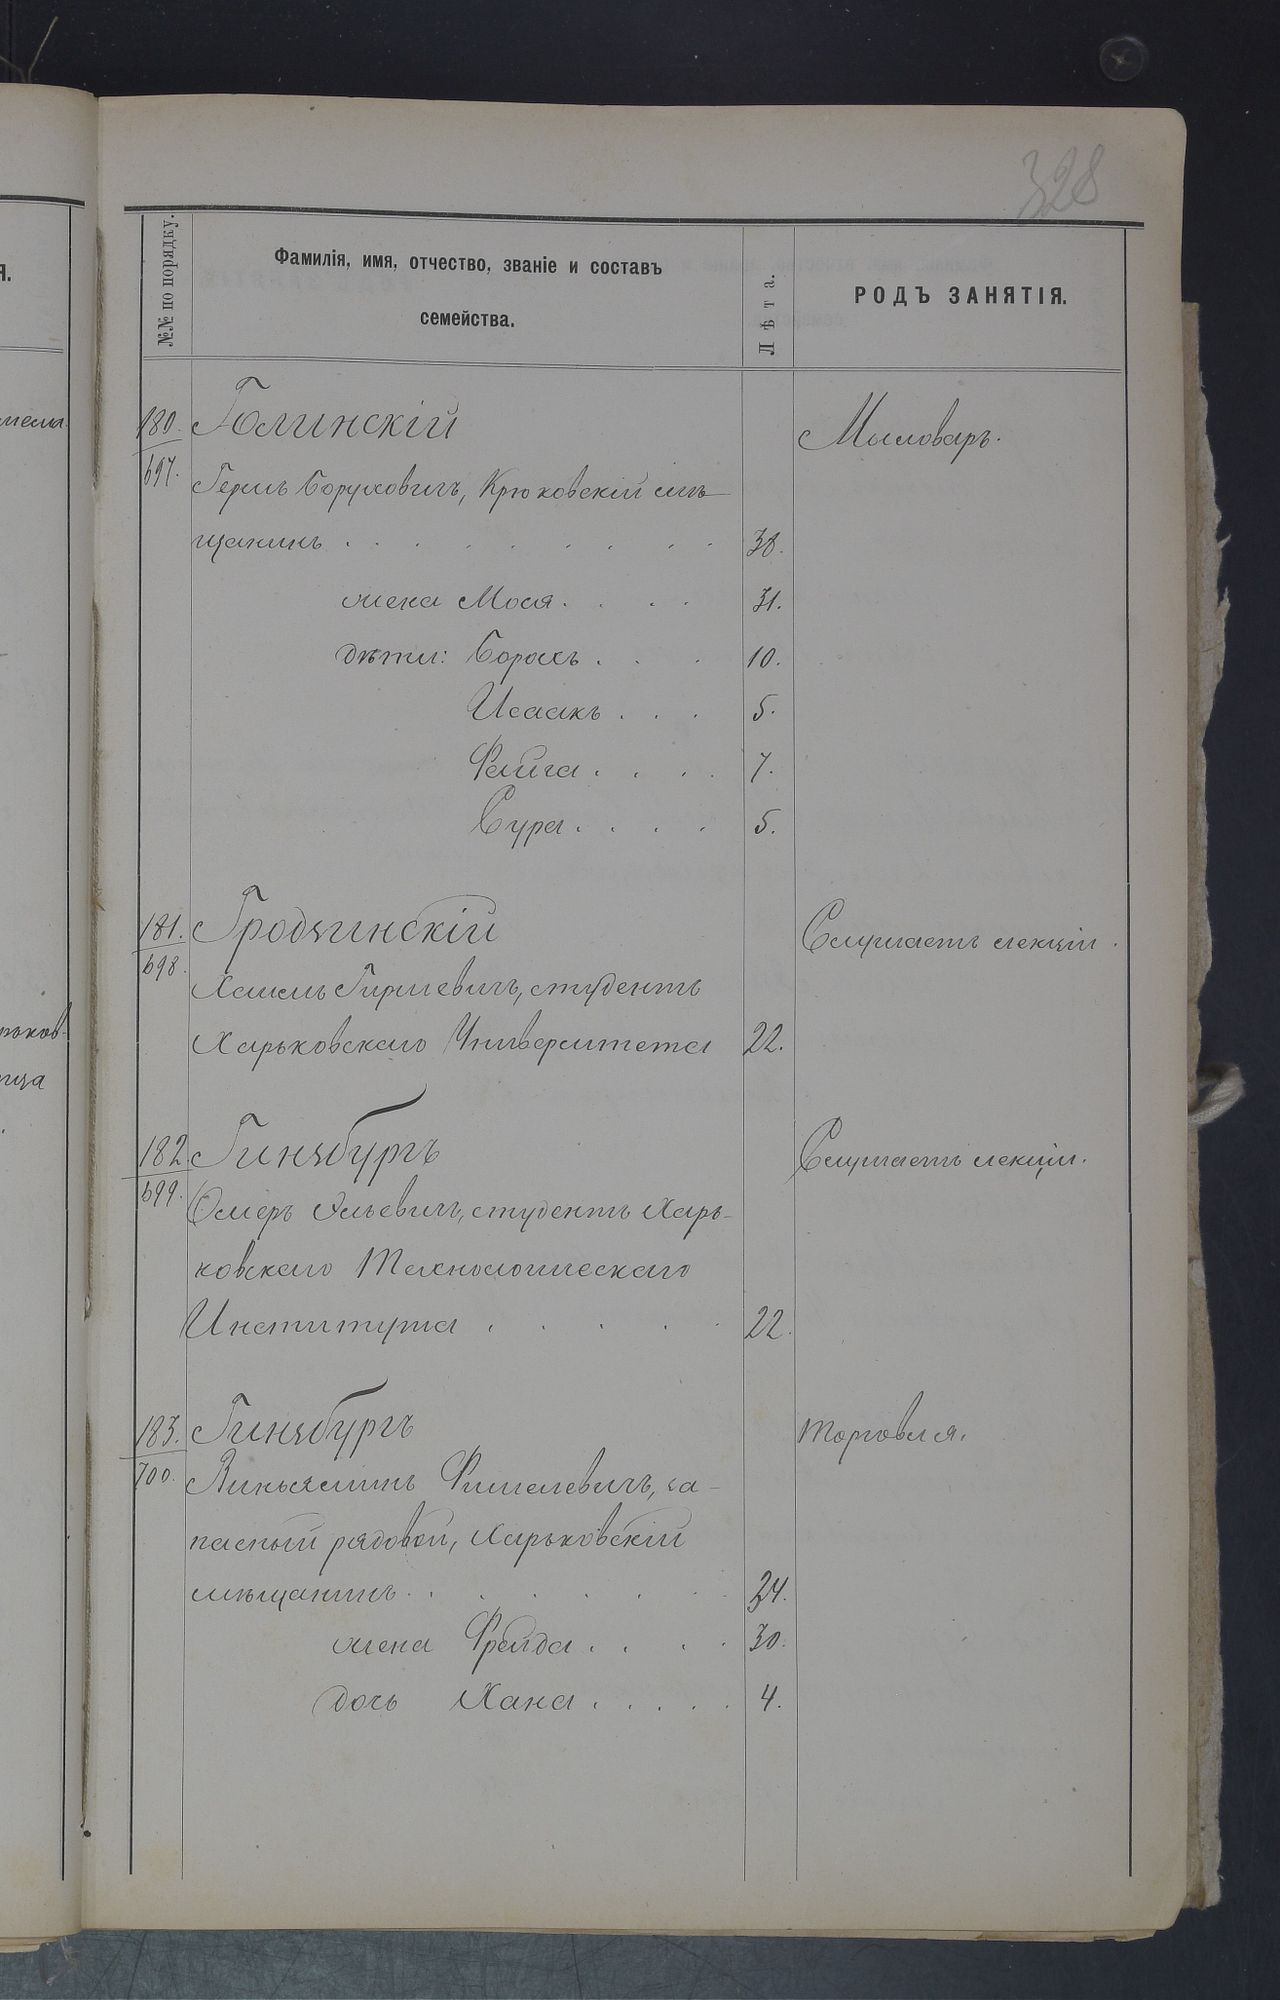 328
№№ по порядку.
Фамилія, имя, отчество, званіе и составъ
семейства.
Лѣта.
РОДЪ ЗАНЯТІЯ.
180. Голинскій Мыловаръ.
697. Герш Боруховичъ, Крюковскій мѣ-
щанинъ 38.
жена Мося 31.
дѣти: Борохъ 10.
Исаакъ 5.
Файга 7.
Сура 5.
181. Гродзинскій Слушаетъ лекціи.
698. Гиршевичъ, студентъ
Харьковскаго Университета 22.
182 Гинзбургъ Слушаетъ лекціи.
699. студентъ Харь-
ковскаго Технологическаго
Института 22.
183. Гинзбургъ Торговля.
700. Виньяминъ Фишелевичъ, за-
пасный рядовой, Харьковскій
мѣщанинъ 24.
жена Фрейда 30.
дочь Хана 4.